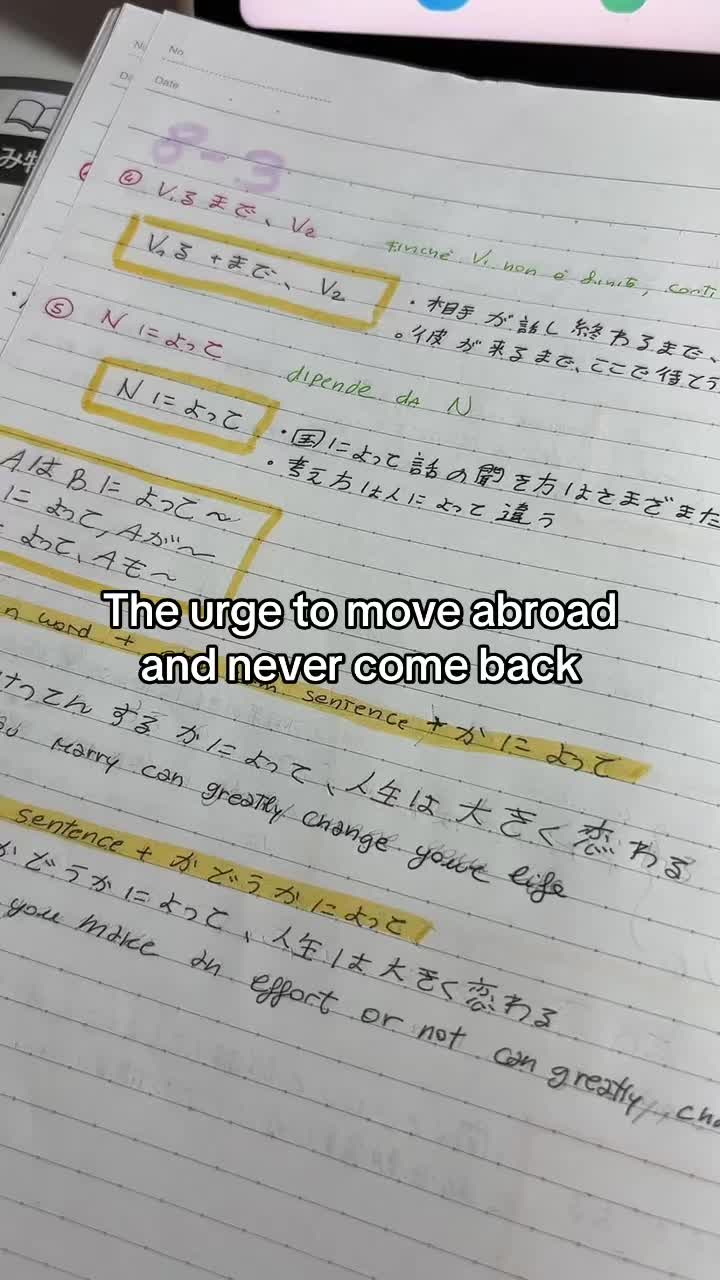 No.
Date
み
8-3
④ V₁る まで、V₂
V₁る + まで、V₂
finché V₁ non è finito, conti
・相手が話し終わるまで、
。彼が来るまで、ここで待てう
⑤ N によって
dipende da N
N によって
・国によって話の聞き方はさまざまだ
・考え方は人によって違う
AはBによって〜
によって、Aが〜
よって、Aも〜
The urge to move abroad
and never come back
n word + sentence + かによって
けってんするかによって、人生は大きく変わる
marry can greatly change your life
sentence + かどうかによって
かどうかによって、人生は大きく変わる
you make an effort or not can greatly, cha